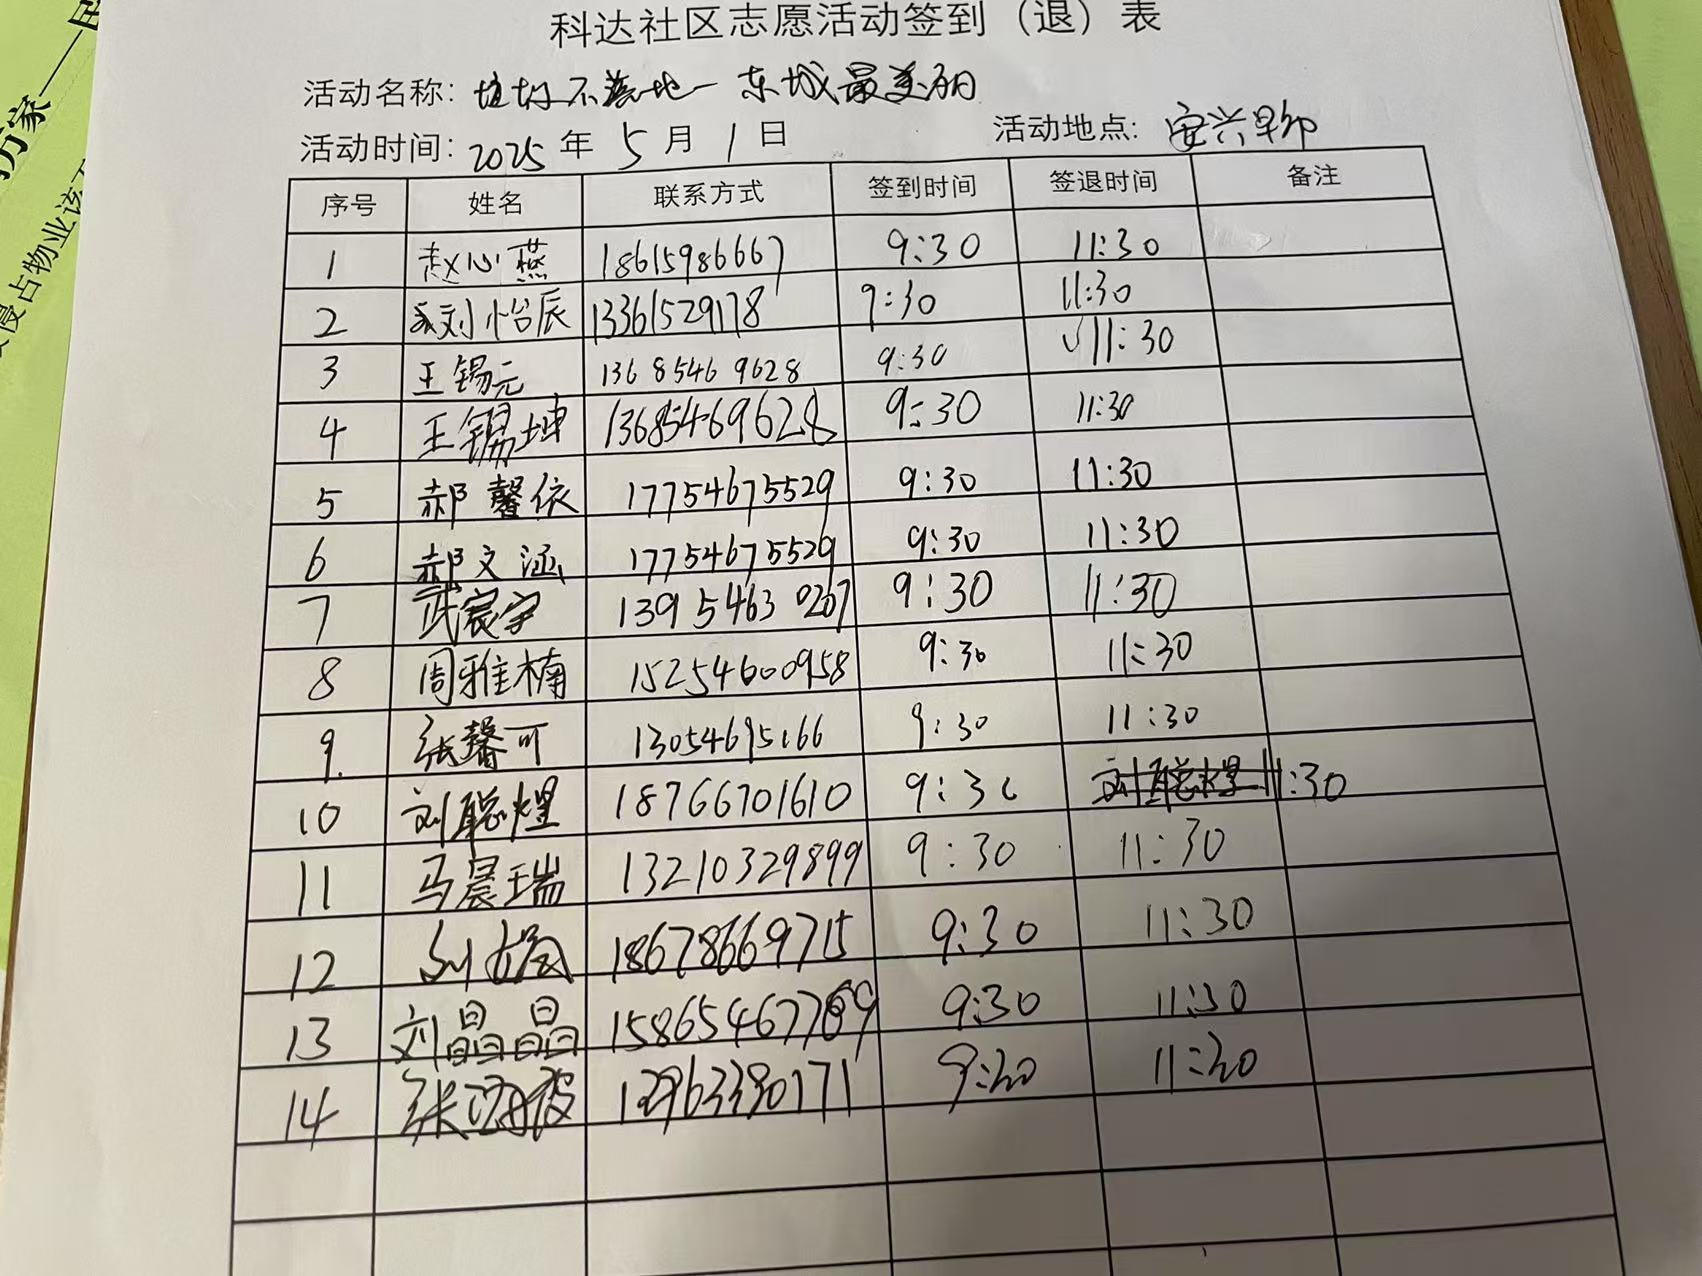 科达社区志愿活动签到（退）表
活动名称: 垃圾不落地一东城最美丽
活动时间: 2025 年 5 月 1 日 活动地点: 安兴
序号 姓名 联系方式 签到时间 签退时间 备注
1 赵心燕 18615986667 9:30 11:30
2 刘怡辰 13361529178 9:30 11:30
3 王锡元 13685469628 9:30 √11:30
4 王锡坤 13685469628 9:30 11:30
5 郝馨依 17754675529 9:30 11:30
6 郝文涵 17754675529 9:30 11:30
7 武宸宇 13954630207 9:30 11:30
8 周雅楠 15254600958 9:30 11:30
9. 张馨可 13054695166 9:30 11:30
10 刘聪煜 18766701610 9:30 刘聪煜 11:30
11 马晨瑞 13210329899 9:30 11:30
12 刘 18678669715 9:30 11:30
13 刘晶晶 15865467769 9:30 11:30
14 张 9:30 11:30